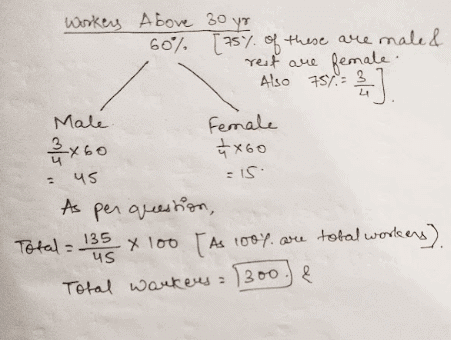 Workers Above 30 yr
60% [75% of these are male &
rest are female.
Also 75% = 3/4].
Male Female
3/4 × 60 1/4 × 60
= 45 = 15.
As per question,
Total = 135/45 × 100 [As 100% are total workers).
Total Workers = 300. &